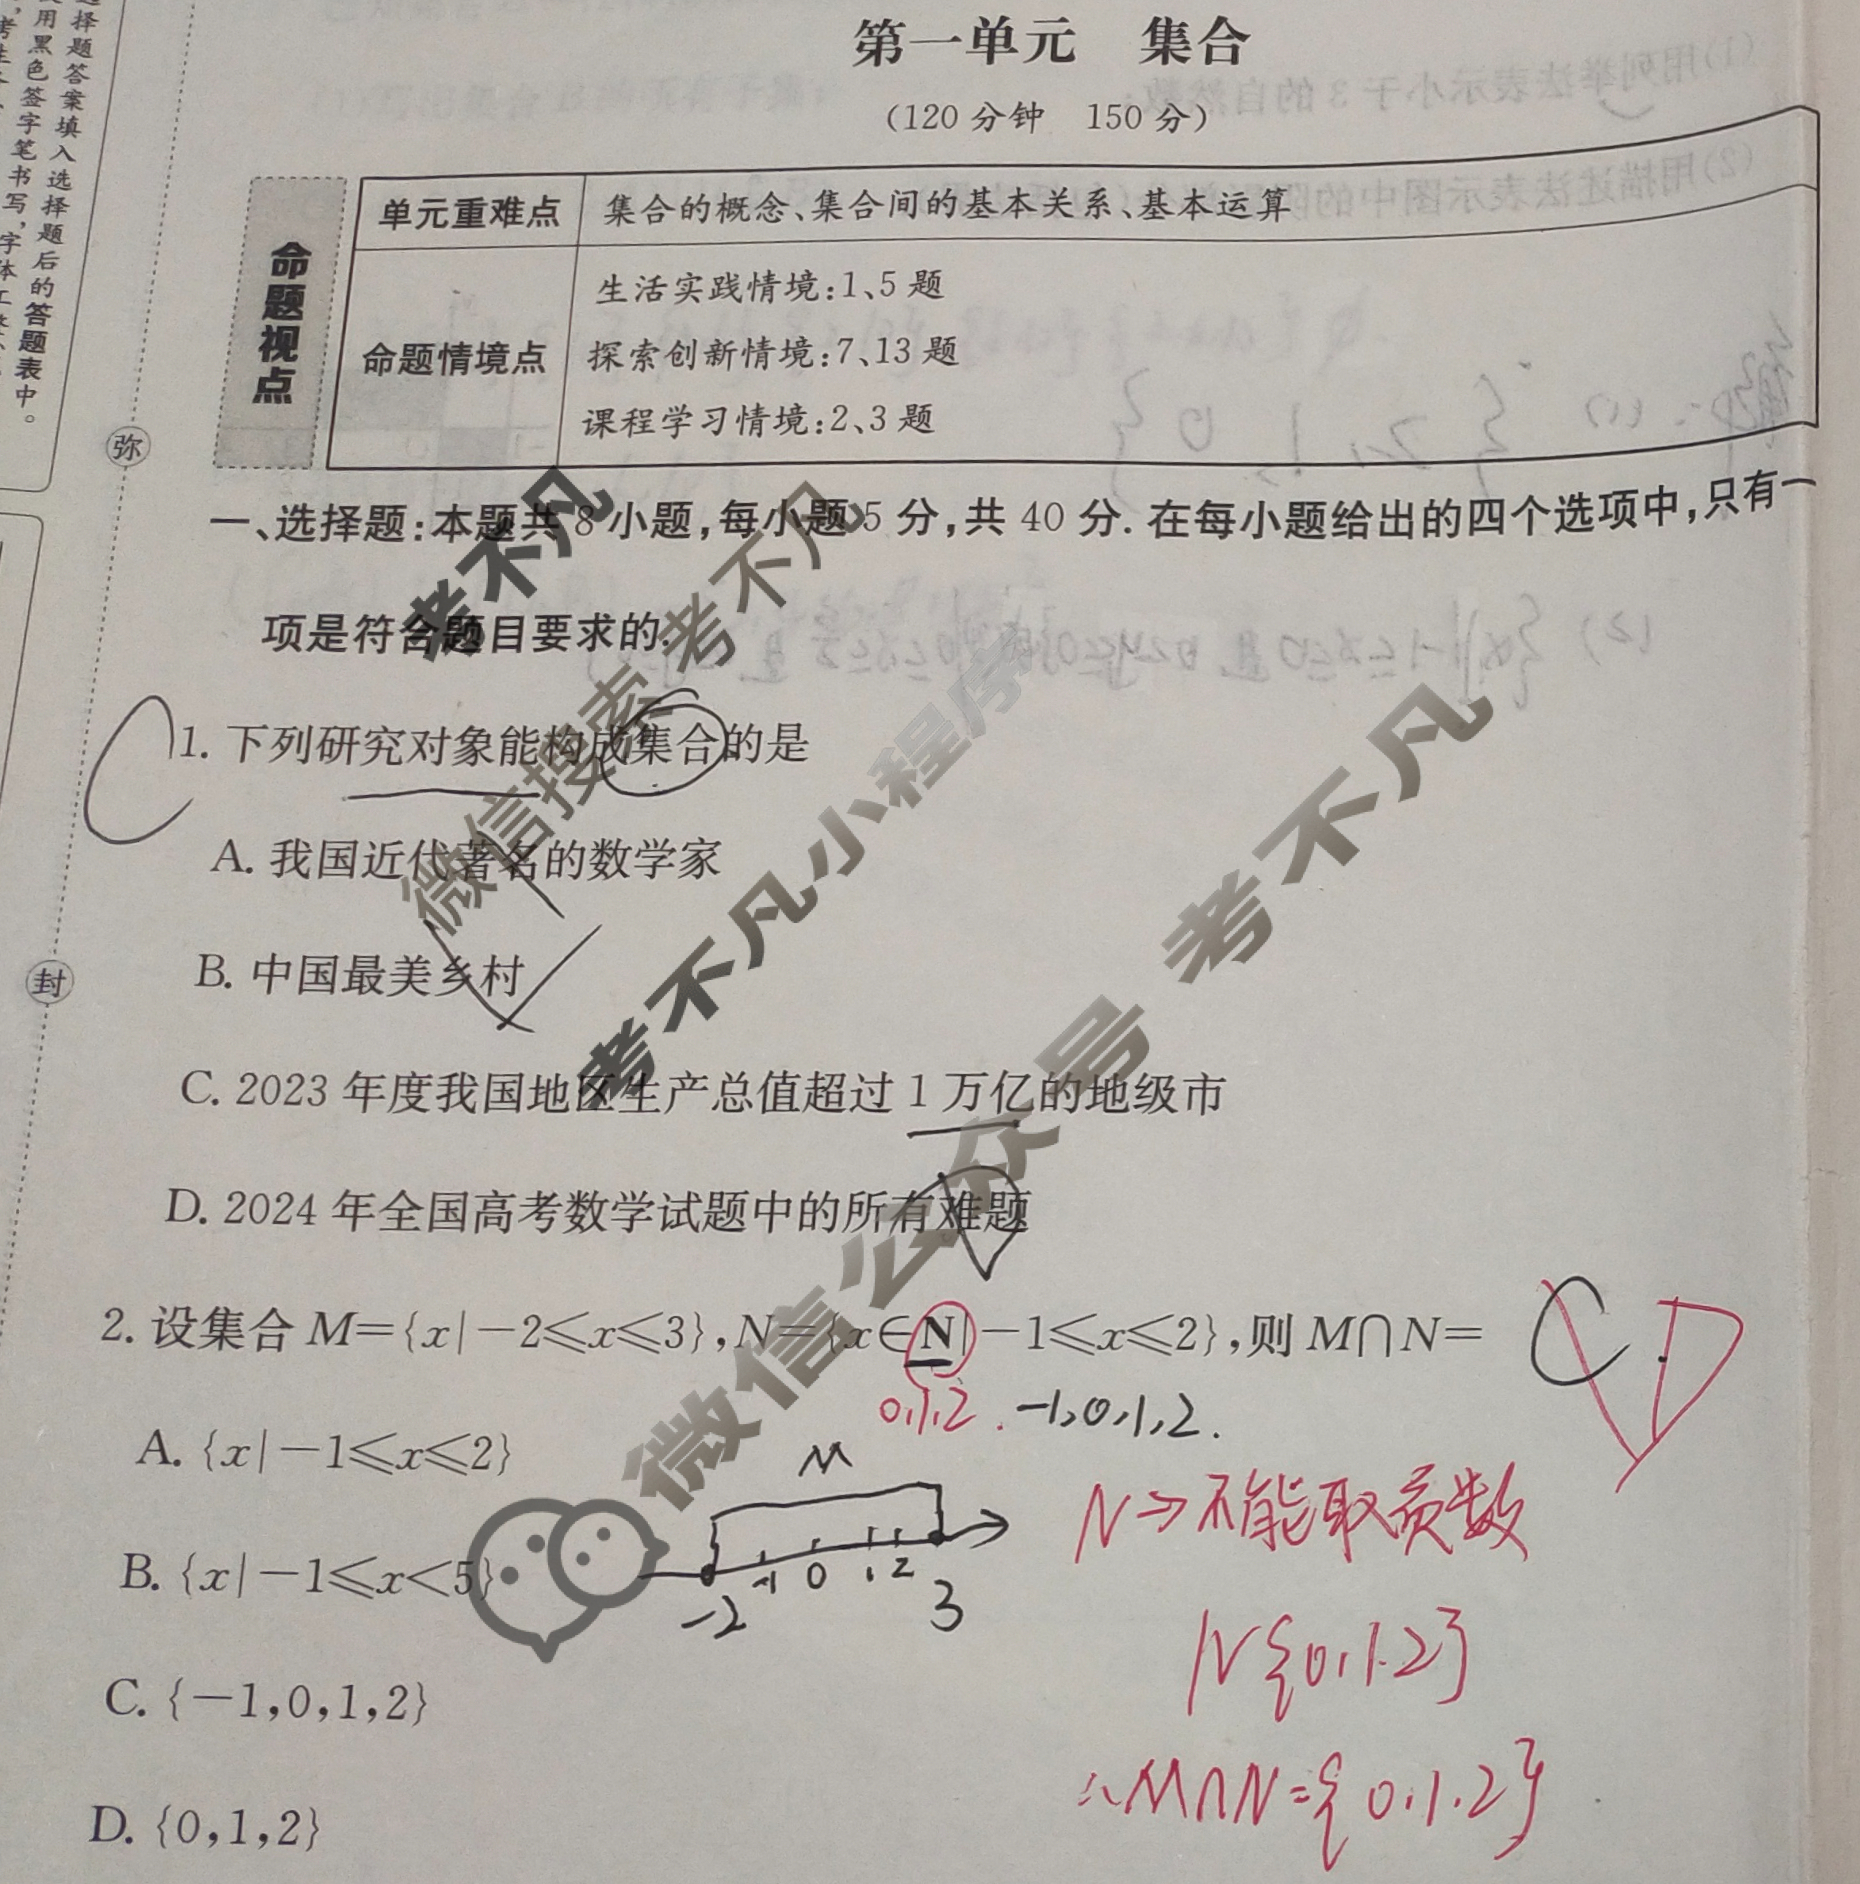 选择题答案填入选择题后的答题表中。
用黑色签字笔书写,字体工
弥
封
第一单元 集合
(120分钟 150分)
命题视点
单元重难点 集合的概念、集合间的基本关系、基本运算
命题情境点
生活实践情境:1、5题
探索创新情境:7、13题
课程学习情境:2、3题
一、选择题:本题共8小题,每小题5分,共40分. 在每小题给出的四个选项中,只有一
项是符合题目要求的.
C 1. 下列研究对象能构成集合的是
A. 我国近代著名的数学家
B. 中国最美乡村
C. 2023年度我国地区生产总值超过1万亿的地级市
D. 2024年全国高考数学试题中的所有难题
2. 设集合M={x|-2≤x≤3},N={x∈N|-1≤x≤2},则M∩N= C D
0,1,2. -1,0,1,2.
A. {x|-1≤x≤2}
M
N→不能取负数
B. {x|-1≤x<5}
-2 -1 0 1 2 3
N{0,1.2}
C. {-1,0,1,2}
∴M∩N={0.1.2}
D. {0,1,2}
考不凡
微信搜索 考不凡
考不凡小程序
微信公众号 考不凡